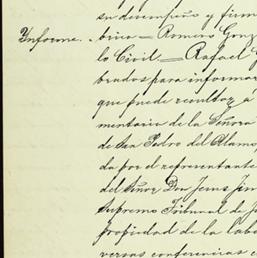 su desempeño y firm
Informe. brica = Romero Gonz
lo Civil = Rafael
brados para informar
que puede resultar á
mentaria de la Señora
de San Pedro del Alamo,
da por el representante
del Señor Don Jesus Jim
Supremo Tribunal de J
propiedad de la labo
versas conferencias c